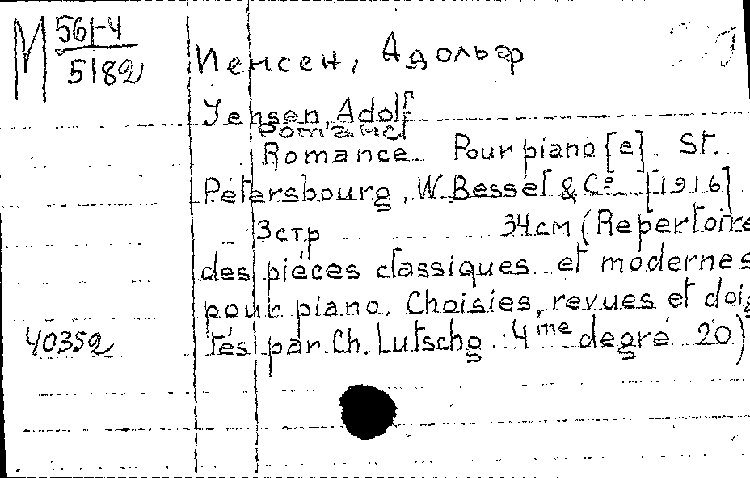 М 561-4
5182
Иенсен, Адольф
Jensen, Adolf
Romance. Pour piano [e]. St.
Pétersbourg, W. Bessel & Cº [1916]
3 стр 34 см (Repertoire
des pièces classiques et modernes
pour piano. Choisies, revues et doig
tés par Ch. Lutschg. 4me degré 20)
40352